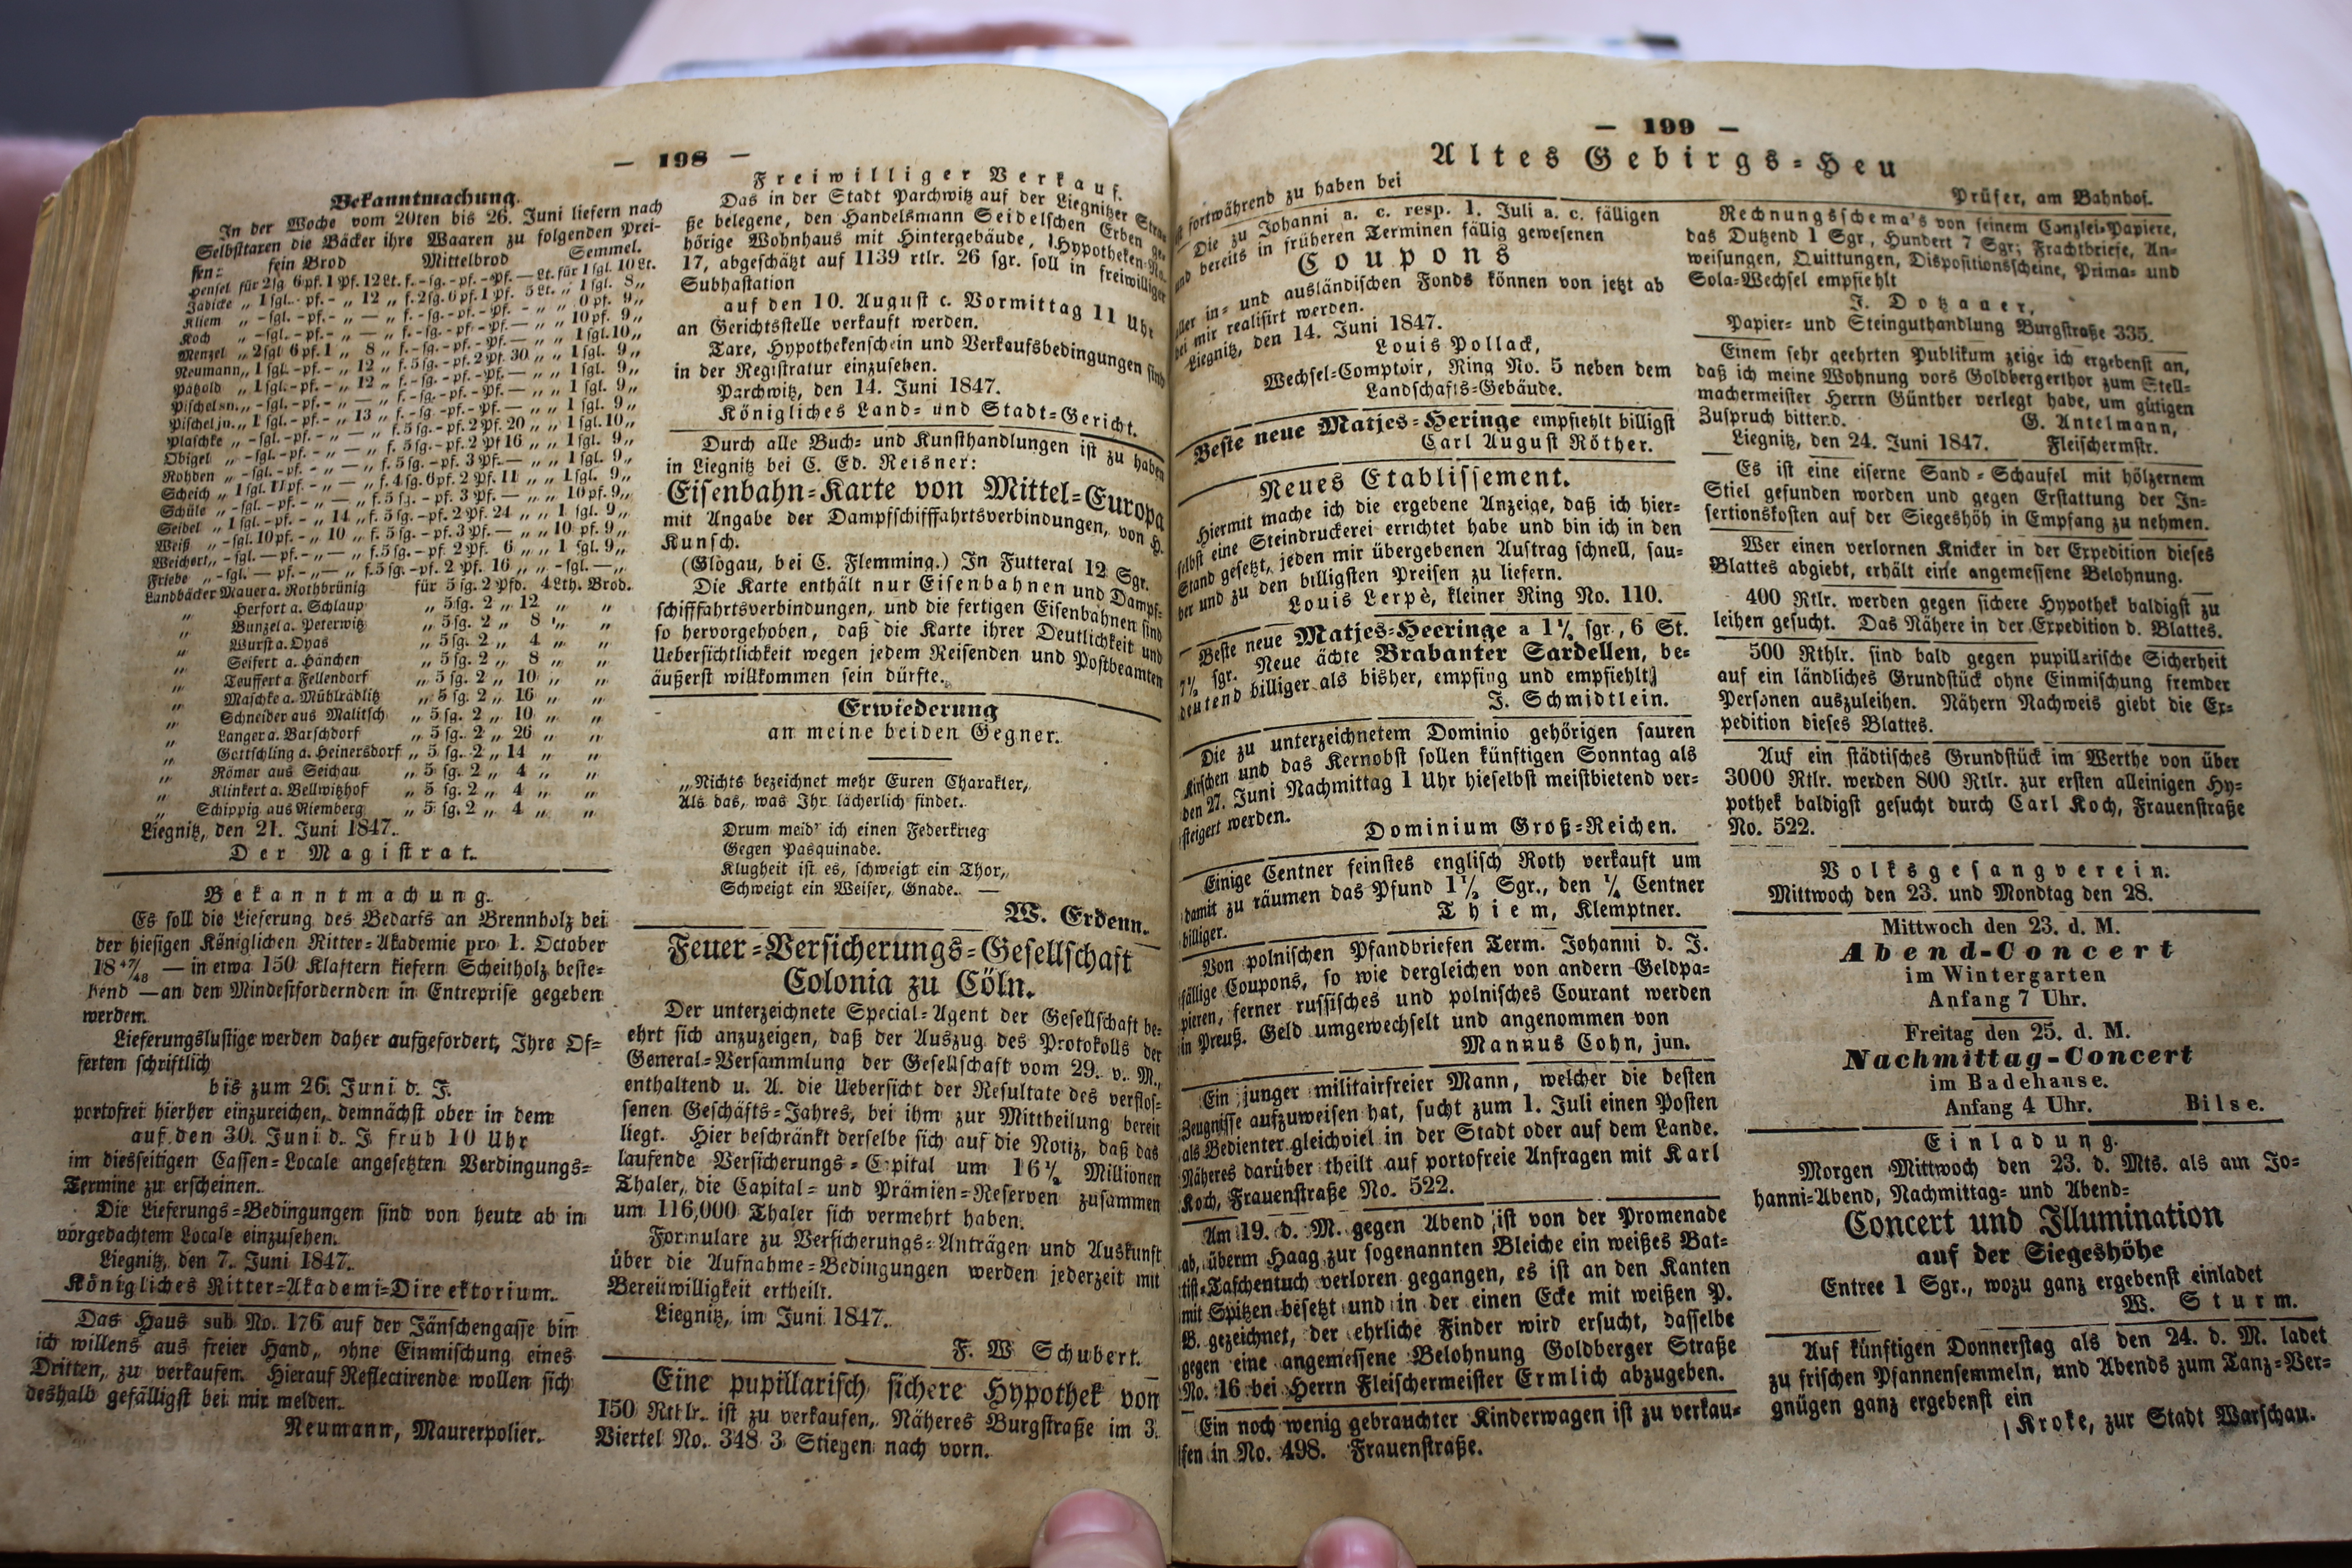 — 198 —
Bekanntmachung.
In der Woche vom 20ten bis 26. Juni liefern nach
Selbsttaxen die Bäcker ihre Waaren zu folgenden Prei-
sen: fein Brod Mittelbrod Semmel.
Hensel für 2sg 6pf. 1 Pf. 12 Lt. f. -sg. -pf. -Pf. — Lt. für 1 sgl. 10 Lt.
Jäbicke „ 1sgl. -pf. - „ 12 „ f. 2sg. 6pf. 1 Pf. 5Lt. „ 1sgl. 8„
Kliem „ -sgl. -pf. - „ — „ f. -sg. -pf. -Pf. - „ „ 0pf. 9„
Koch „ -sgl. -pf. - „ — „ f. -sg. -pf. -Pf. — „ „ 10pf. 9„
Menzel „ 2sgl 6pf. 1 „ 8 „ f. -sg. -pf. -Pf. — „ „ 1sgl. 10„
Neumann „ 1sgl. -pf. - „ 12 „ f. 5sg. -pf. 2Pf. 30 „ „ 1 sgl. 9„
Pätzold „ 1sgl. -pf. - „ 12 „ f. -sg. -pf. -Pf. — „ „ 1 sgl. 9„
Pischel sn. „ -sgl. -pf. - „ — „ f. -sg. -pf. -Pf. — „ „ 1 sgl. 9„
Pischel jn. „ 1sgl. -pf. - „ 13 „ f. -sg. -pf. -Pf. — „ „ 1 sgl. 9„
Plaschke „ -sgl. -pf. - „ — „ f. 5sg. -pf. 2Pf. 20 „ „ 1 sgl. 10„
Obigel „ -sgl. -pf. - „ — „ f. 5sg. -pf. 2 Pf 16 „ „ 1 sgl. 9„
Rohden „ -sgl. -pf. - „ — „ f. 5sg. -pf. 3Pf. — „ „ 1 sgl. 9„
Scheich „ 1sgl. 11pf. - „ — „ f. 4sg. 6pf. 2Pf. 11 „ „ 1sgl. 9„
Schüle „ -sgl. -pf. - „ — „ f. 5sg. -pf. 3Pf. — „ „ 10pf. 9„
Seidel „ 1sgl. -pf. - „ 14 „ f. 5sg. -pf. 2Pf. 24 „ „ 1 sgl. 9„
Weiß „ -sgl. 10pf. - „ 10 „ f. 5sg. -pf. 3Pf. — „ „ 10 pf. 9„
Weichert „ -sgl. — pf. - „ — „ f. 5sg. -pf. 2Pf. 6 „ „ 1 sgl. 9„
Friebe „ -sgl. — pf. - „ — „ f. 5sg. -pf. 2Pf. 16 „ „ -sgl. — „
Landbäcker Mauer a. Rothbrünig für 5sg. 2 Pfd. 4Lth. Brod.
„ Herfort a. Schlaup „ 5sg. 2 „ 12 „ „
„ Bunzel a. Peterwitz „ 5sg. 2 „ 8 „ „
„ Wurst a. Dyas „ 5sg. 2 „ 4 „ „
„ Seifert a. Hänchen „ 5sg. 2 „ 8 „ „
„ Teuffert a. Fellendorf „ 5sg. 2 „ 10 „ „
„ Maschke a. Mühlrädlitz „ 5sg. 2 „ 16 „ „
„ Schneider aus Malitsch „ 5sg. 2 „ 10 „ „
„ Langer a. Barschdorf „ 5sg. 2 „ 26 „ „
„ Gottschling a. Heinersdorf „ 5sg. 2 „ 14 „ „
„ Römer aus Seichau „ 5 sg. 2 „ 4 „ „
„ Klinkert a. Bellwitzhof „ 5 sg. 2 „ 4 „ „
„ Schippig aus Riemberg „ 5 sg. 2 „ 4 „ „
Liegnitz, den 21. Juni 1847.
Der Magistrat.
Bekanntmachung.
Es soll die Lieferung des Bedarfs an Brennholz bei
der hiesigen Königlichen Ritter-Akademie pro 1. October
18 47/48 — in etwa 150 Klaftern kiefern Scheitholz beste-
hend — an den Mindestfordernden in Entreprise gegeben
werden.
Lieferungslustige werden daher aufgefordert, Ihre Of-
ferten schriftlich
bis zum 26. Juni d. J.
portofrei hierher einzureichen, demnächst ober in dem
auf den 30. Juni d. J. früh 10 Uhr
im diesseitigen Cassen-Locale angesetzten Verdingungs-
Termine zu erscheinen.
Die Lieferungs-Bedingungen sind von heute ab in
vorgedachtem Locale einzusehen.
Liegnitz, den 7. Juni 1847.
Königliches Ritter-Akademi-Direektorium.
Das Haus sub No. 176 auf der Jänschengasse bin
ich willens aus freier Hand, ohne Einmischung eines
Dritten, zu verkaufen. Hierauf Reflectirende wollen sich
deshalb gefälligst bei mir melden.
Neumann, Maurerpolier.
Freiwilliger Verkauf.
Das in der Stadt Parchwitz auf der Liegnitzer Stra-
ße belegene, den Handelsmann Seidelschen Erben ge-
hörige Wohnhaus mit Hintergebäude, Hypotheken-No.
17, abgeschätzt auf 1139 rtlr. 26 sgr. soll in freiwilliger
Subhastation
auf den 10. August c. Vormittag 11 Uhr
an Gerichtsstelle verkauft werden.
Taxe, Hypothekenschein und Verkaufsbedingungen sind
in der Registratur einzusehen.
Parchwitz, den 14. Juni 1847.
Königliches Land- und Stadt-Gericht.
Durch alle Buch- und Kunsthandlungen ist zu haben
in Liegnitz bei C. Ed. Reisner:
Eisenbahn-Karte von Mittel-Europa
mit Angabe der Dampfschifffahrtsverbindungen, von H.
Kunsch.
(Glogau, bei C. Flemming.) In Futteral 12 Sgr.
Die Karte enthält nur Eisenbahnen und Dampf-
schifffahrtsverbindungen, und die fertigen Eisenbahnen sind
so hervorgehoben, daß die Karte ihrer Deutlichkeit und
Uebersichtlichkeit wegen jedem Reisenden und Postbeamten
äußerst willkommen sein dürfte.
Erwiederung
an meine beiden Gegner.
„Nichts bezeichnet mehr Euren Charakter,
Als das, was Ihr lächerlich findet.
Drum meid' ich einen Federkrieg
Gegen Pasquinade.
Klugheit ist es, schweigt ein Thor,
Schweigt ein Weiser, Gnade. —
W. Erdenn.
Feuer-Versicherungs-Gesellschaft
Colonia zu Cöln.
Der unterzeichnete Special-Agent der Gesellschaft be-
ehrt sich anzuzeigen, daß der Auszug des Protokolls der
General-Versammlung der Gesellschaft vom 29. v. M.,
enthaltend u. A. die Uebersicht der Resultate des verflos-
senen Geschäfts-Jahres, bei ihm zur Mittheilung bereit
liegt. Hier beschränkt derselbe sich auf die Notiz, daß das
laufende Versicherungs-Capital um 16½ Millionen
Thaler, die Capital- und Prämien-Reserven zusammen
um 116,000 Thaler sich vermehrt haben.
Formulare zu Versicherungs-Anträgen und Auskunft
über die Aufnahme-Bedingungen werden jederzeit mit
Bereitwilligkeit ertheilt.
Liegnitz, im Juni 1847.
F. W Schubert.
Eine pupillarisch sichere Hypothek von
150 Rthlr. ist zu verkaufen, Näheres Burgstraße im 3.
Viertel No. 348 3 Stiegen nach vorn.
— 199 —
Altes Gebirgs-Heu
ist fortwährend zu haben bei
Prüfer, am Bahnhof.
Die zu Johanni a. c. resp. 1. Juli a. c. fälligen
und bereits in früheren Terminen fällig gewesenen
Coupons
aller in- und ausländischen Fonds können von jetzt ab
bei mir realisirt werden.
Liegnitz, den 14. Juni 1847.
Louis Pollack,
Wechsel-Comptoir, Ring No. 5 neben dem
Landschafts-Gebäude.
Beste neue Matjes-Heringe empfiehlt billigst
Carl August Röther.
Neues Etablissement.
Hiermit mache ich die ergebene Anzeige, daß ich hier-
selbst eine Steindruckerei errichtet habe und bin ich in den
Stand gesetzt, jeden mir übergebenen Auftrag schnell, sau-
ber und zu den billigsten Preisen zu liefern.
Louis Lerpè, kleiner Ring No. 110.
Beste neue Matjes-Heeringe a 1½ sgr., 6 St.
7½ sgr. Neue ächte Brabanter Sardellen, be-
deutend billiger als bisher, empfing und empfiehlt
J. Schmidtlein.
Die zu unterzeichnetem Dominio gehörigen sauren
Kirschen und das Kernobst sollen künftigen Sonntag als
den 27. Juni Nachmittag 1 Uhr hieselbst meistbietend ver-
steigert werden.
Dominium Groß-Reichen.
Einige Centner feinstes englisch Roth verkauft um
damit zu räumen das Pfund 1½ Sgr., den ¼ Centner
billiger.
Thiem, Klemptner.
Von polnischen Pfandbriefen Term. Johanni d. J.
fällige Coupons, so wie dergleichen von andern Geldpa-
pieren, ferner russisches und polnisches Courant werden
in Preuß. Geld umgewechselt und angenommen von
Mannus Cohn, jun.
Ein junger militairfreier Mann, welcher die besten
Zeugnisse aufzuweisen hat, sucht zum 1. Juli einen Posten
als Bedienter gleichviel in der Stadt oder auf dem Lande.
Näheres darüber theilt auf portofreie Anfragen mit Karl
Koch, Frauenstraße No. 522.
Am 19. d. M. gegen Abend ist von der Promenade
ab, überm Haag zur sogenannten Bleiche ein weißes Bat-
tist-Taschentuch verloren gegangen, es ist an den Kanten
mit Spitzen besetzt und in der einen Ecke mit weißen P.
B. gezeichnet, der ehrliche Finder wird ersucht, dasselbe
gegen eine angemessene Belohnung Goldberger Straße
No. 16 bei Herrn Fleischermeister Ermlich abzugeben.
Ein noch wenig gebrauchter Kinderwagen ist zu verkau-
fen in No. 498. Frauenstraße.
Rechnungsschema's von feinem Canzlei-Papiere,
das Dutzend 1 Sgr, Hundert 7 Sgr; Frachtbriefe, An-
weisungen, Quittungen, Dispositionsscheine, Prima- und
Sola-Wechsel empfiehlt
J. Dotzauer,
Papier- und Steinguthandlung Burgstraße 335.
Einem sehr geehrten Publikum zeige ich ergebenst an,
daß ich meine Wohnung vors Goldbergerthor zum Stell-
machermeister Herrn Günther verlegt habe, um gütigen
Zuspruch bittend. G. Antelmann,
Liegnitz, den 24. Juni 1847. Fleischermstr.
Es ist eine eiserne Sand-Schaufel mit hölzernem
Stiel gefunden worden und gegen Erstattung der In-
sertionskosten auf der Siegeshöh in Empfang zu nehmen.
Wer einen verlornen Knicker in der Expedition dieses
Blattes abgiebt, erhält eine angemessene Belohnung.
400 Rtlr. werden gegen sichere Hypothek baldigst zu
leihen gesucht. Das Nähere in der Expedition d. Blattes.
500 Rthlr. sind bald gegen pupillarische Sicherheit
auf ein ländliches Grundstück ohne Einmischung fremder
Personen auszuleihen. Nähern Nachweis giebt die Ex-
pedition dieses Blattes.
Auf ein städtisches Grundstück im Werthe von über
3000 Rtlr. werden 800 Rtlr. zur ersten alleinigen Hy-
pothek baldigst gesucht durch Carl Koch, Frauenstraße
No. 522.
Volksgesangverein.
Mittwoch den 23. und Mondtag den 28.
Mittwoch den 23. d. M.
Abend-Concert
im Wintergarten
Anfang 7 Uhr.
Freitag den 25. d. M.
Nachmittag-Concert
im Badehause.
Anfang 4 Uhr. Bilse.
Einladung.
Morgen Mittwoch den 23. d. Mts. als am Jo-
hanni-Abend, Nachmittag- und Abend-
Concert und Illumination
auf der Siegeshöhe
Entree 1 Sgr., wozu ganz ergebenst einladet
W. Sturm.
Auf künftigen Donnerstag als den 24. d. M. ladet
zu frischen Pfannensemmeln, und Abends zum Tanz-Ver-
gnügen ganz ergebenst ein
Kroke, zur Stadt Warschau.